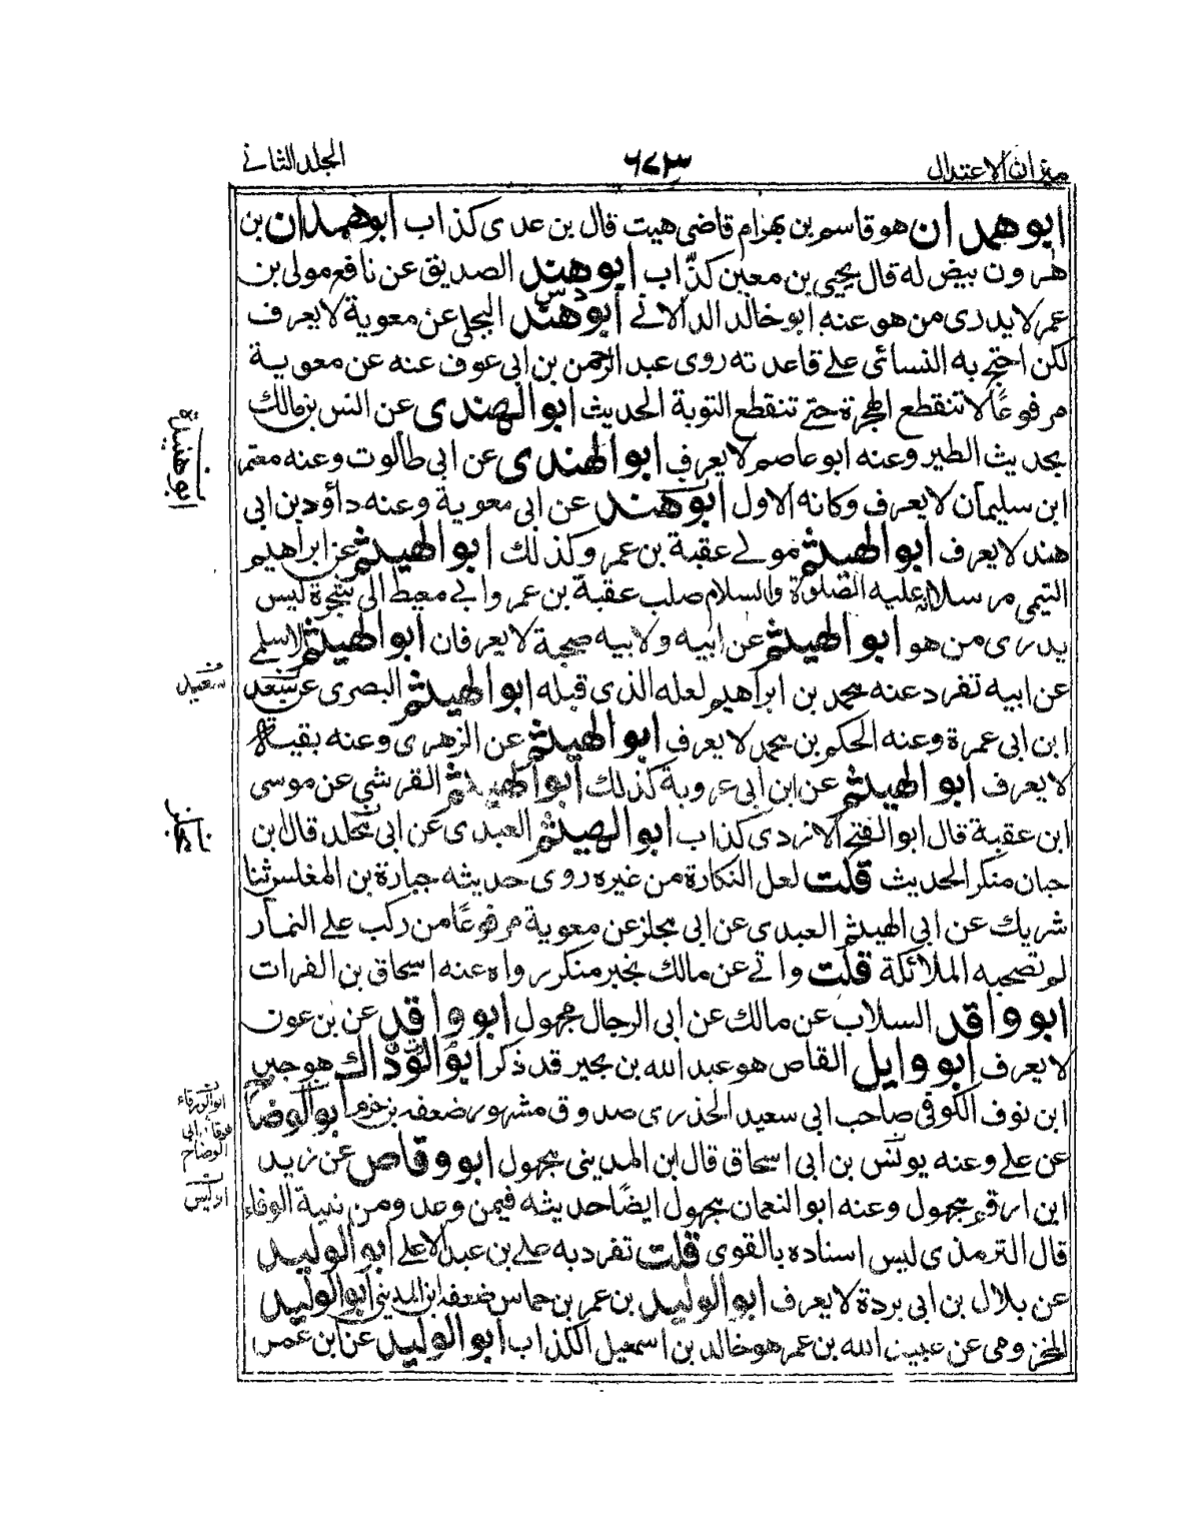 ميزان الاعتدال
٦٧٣
الجلد الثانى
ابو همدان هو قاسم بن بهرام قاضى هيت قال بن عدى كذاب ابو همدان بن
هرون بيض له قال يحيى بن معين كذّاب ابو هند الصديق عن نافع مولى بن
عمر لا يدرى من هو عنه ابو خالد الدالانى ابو هند البجلى عن معوية لا يعرف
لكن احتج به النسائى على قاعدته روى عبد الرحمن بن ابى عوف عنه عن معوية
مرفوعًا لا تنقطع الهجرة حتى تنقطع التوبة الحديث ابو الهندى عن انس بن مالك
بحديث الطير وعنه ابو عاصم لا يعرف ابو الهندى عن ابى طالوت وعنه معتمر
ابن سليمان لا يعرف وكانه الاول ابو هند عن ابى معوية وعنه داؤد بن ابى
هند لا يعرف ابو الهيثم مولى عقبة بن عمر وكذلك ابو الهيثم عن ابراهيم
التيمى مرسلا عليه الصلوة والسلام صلب عقبة بن عمر وابى معيط الى شجرة ليس
يدرى من هو ابو الهيثم عن ابيه ولابيه صحبة لا يعرفان ابو الهيثم الاسلمى
عن ابيه تفرد عنه محمد بن ابراهيم لعله الذى قبله ابو الهيثم البصرى عن سعد
ابن ابى عمرة وعنه الحكم بن محمد لا يعرف ابو الهيثم عن الزهرى وعنه بقية
لا يعرف ابو الهيثم عن ابن ابى عروبة كذلك ابو الهيثم القرشى عن موسى
ابن عقبة قال ابو الفتح الازدى كذاب ابو الهيثم العبدى عن ابى مخلد قال ابن
حبان منكر الحديث قلت لعل النكارة من غيره روى حديثه جبارة بن المغلس ثنا
شريك عن ابى الهيثم العبدى عن ابى مجلز عن معوية مرفوعًا من ركب على النمار
لم تصحبه الملائكة قلت واتى عن مالك بخبر منكر رواه عنه اسحاق بن الفرات
ابو واقد السلاب عن مالك عن ابى الرجال مجهول ابو واقد عن بن عون
لا يعرف ابو وايل القاص هو عبد الله بن بحير قد ذكر ابو الودّاك هو جبر
ابن نوف الكوفى صاحب ابى سعيد الخذرى صدوق مشهور ضعفه بن حزم ابو الوضا
عن على وعنه يونس بن ابى اسحاق قال ابن المدينى مجهول ابو وقاص عن زيد
ابن ارقم مجهول وعنه ابو النعمان مجهول ايضًا حديثه فيمن وعد ومن نية الوفاء
قال الترمذى ليس اسناده بالقوى قلت تفرد به على بن عبد الاعلى ابو الوليد
عن بلال بن ابى بردة لا يعرف ابو الوليد بن عمر بن حماس ضعفه ابن المدينى ابو الوليد
المخزومى عن عبيد الله بن عمر هو خالد بن اسمعيل الكذاب ابو الوليد عن ابن عمر
ابو هنيدة
سعيد
ابو الورقاء
ابى
الوضاح